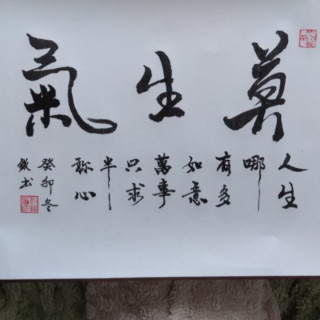 莫生氣
人生
哪
有多
如意
萬事
只求
半
称心
癸卯冬